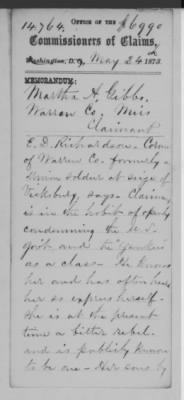 14,764. OFFICE OF THE $6990
Commissioners of Claims,
Washington, D.C., May 24th 1873.
MEMORANDUM:
Martha A. Gibbs,
Warren Co, Miss
Claimant
E. D. Richardson -
of Warren Co. formerly a
Union soldier at seige of
Vicksburg, says - Claimant
is in the habit of openly
condemning the U.S.
govt and the yankees
as a class - He knows
her and has often heard
her so express herself -
She is at the present
time a bitter rebel -
and is publicly known
to be one - Her sons by